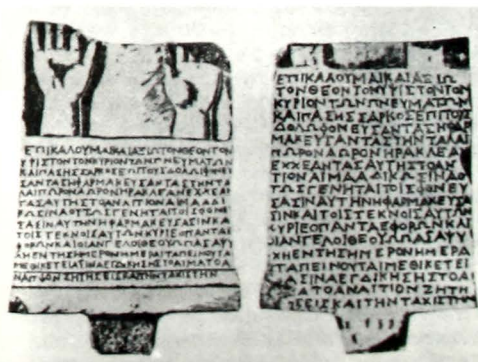 ΕΠΙΚΑΛΟΥΜΑΙΚΑΙΑΞΙΩΤΟΝΘΕΟΝΤΟΝ
ΥΨΙΣΤΟΝΤΟΝΚΥΡΙΟΝΤΩΝΠΝΕΥΜΑΤΩΝ
ΚΑΙΠΑΣΗΣΣΑΡΚΟΣΕΠΙΤΟΥΣΔΟΛΩΙΦΟΝΕΥ
ΣΑΝΤΑΣΗΦΑΡΜΑΚΕΥΣΑΝΤΑΣΤΗΝΤΑ
ΛΑΙΠΩΡΟΝΑΩΡΟΝΗΡΑΚΛΕΑΝΕΧΧΕΑΝ
ΤΑΣΑΥΤΗΣΤΟΑΝΑΙΤΙΟΝΑΙΜΑΑΔΙ
ΚΩΣΙΝΑΟΥΤΩΣΓΕΝΗΤΑΙΤΟΙΣΦΟΝΕΥ
ΣΑΣΙΝΑΥΤΗΝΗΦΑΡΜΑΚΕΥΣΑΣΙΝΚΑΙ
ΤΟΙΣΤΕΚΝΟΙΣΑΥΤΩΝΚΥΡΙΕΟΠΑΝΤΑΕ
ΦΟΡΩΝΚΑΙΟΙΑΝΓΕΛΟΙΘΕΟΥΩΠΑΣΑΨΥ
ΧΗΕΝΤΗΣΗΜΕΡΟΝΗΜΕΡΑΙΤΑΠΕΙΝΟΥΤΑΙ
ΜΕΘΙΚΕΤΕΙΑΣΙΝΑΕΓΔΙΚΗΣΗΣΤΟΑΙΜΑΤΟΑ
ΝΑΙΤΙΟΝΖΗΤΗΣΕΙΣΚΑΙΤΗΝΤΑΧΙΣΤΗΝ
ΕΠΙΚΑΛΟΥΜΑΙΚΑΙΑΞΙΩ
ΤΟΝΘΕΟΝΤΟΝΥΨΙΣΤΟΝΤΟΝ
ΚΥΡΙΟΝΤΩΝΠΝΕΥΜΑΤΩΝ
ΚΑΙΠΑΣΗΣΣΑΡΚΟΣΕΠΙΤΟΥΣ
ΔΟΛΩΦΟΝΕΥΣΑΝΤΑΣΗΦΑΡ
ΜΑΚΕΥΣΑΝΤΑΣΤΗΝΤΑΛΑΙ
ΠΩΡΟΝΑΩΡΟΝΗΡΑΚΛΕΑΝ
ΕΧΧΕΑΝΤΑΣΑΥΤΗΣΤΟΑΝΑΙ
ΤΙΟΝΑΙΜΑΑΔΙΚΩΣΙΝΑΟΥ
ΤΩΣΓΕΝΗΤΑΙΤΟΙΣΦΟΝΕΥ
ΣΑΣΙΝΑΥΤΗΝΗΦΑΡΜΑΚΕΥΣΑ
ΣΙΝΚΑΙΤΟΙΣΤΕΚΝΟΙΣΑΥΤΩΝ
ΚΥΡΙΕΟΠΑΝΤΑΕΦΟΡΩΝΚΑΙ
ΟΙΑΝΓΕΛΟΙΘΕΟΥΩΠΑΣΑΨΥ
ΧΗΕΝΤΗΣΗΜΕΡΟΝΗΜΕΡΑ
ΤΑΠΕΙΝΟΥΤΑΙΜΕΘΙΚΕΤΕΙ
ΑΣΙΝΑΕΓΔΙΚΗΣΗΣΤΟΑΙ
ΜΑΤΟΑΝΑΙΤΙΟΝΖΗΤΗ
ΣΕΙΣΚΑΙΤΗΝΤΑΧΙΣΤΗΝ